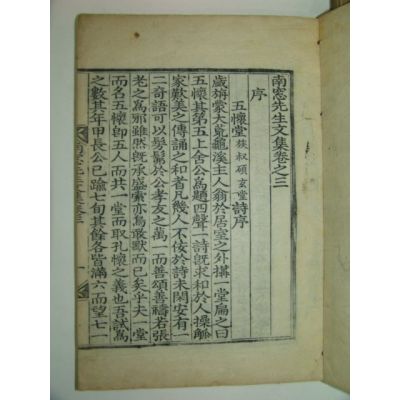 南窓先生文集卷之三
序
五懷堂族叔碩玄堂詩序
歲旃蒙大荒黿溪主人翁於居室之外搆一堂扁之曰
五懷其第五上舍公爲題四聲一詩旣求和於人操觚
家歎美之傳誦之和者凡幾人不佞於詩末閑安有一
二奇語可以髣髴於公孝友之萬一而善頌善禱若張
老之爲邪雖然旣承盛索亦焉敢默而已矣乎夫堂
而名五懷卽五人而共一堂而取孔懷之義也吾試爲
之數其年甲長公已踰七旬其餘各皆滿六而望七一